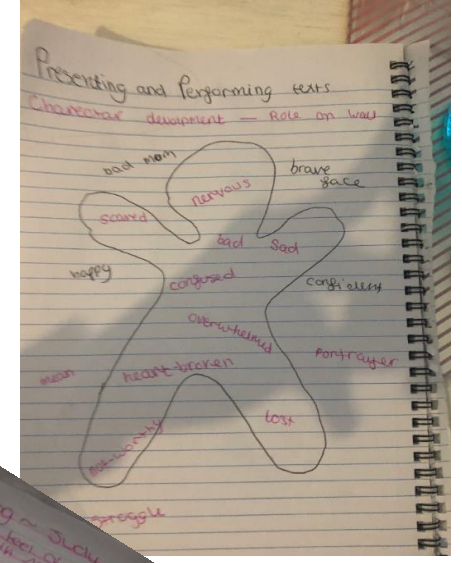 Presenting and Performing texts
Charector development — Role on wall
bad mom
brave
face
nervous
scared
bad
sad
happy
confused
confident
overwhelmed
portrayer
mean
heart broken
lost
not-worthy
struggle